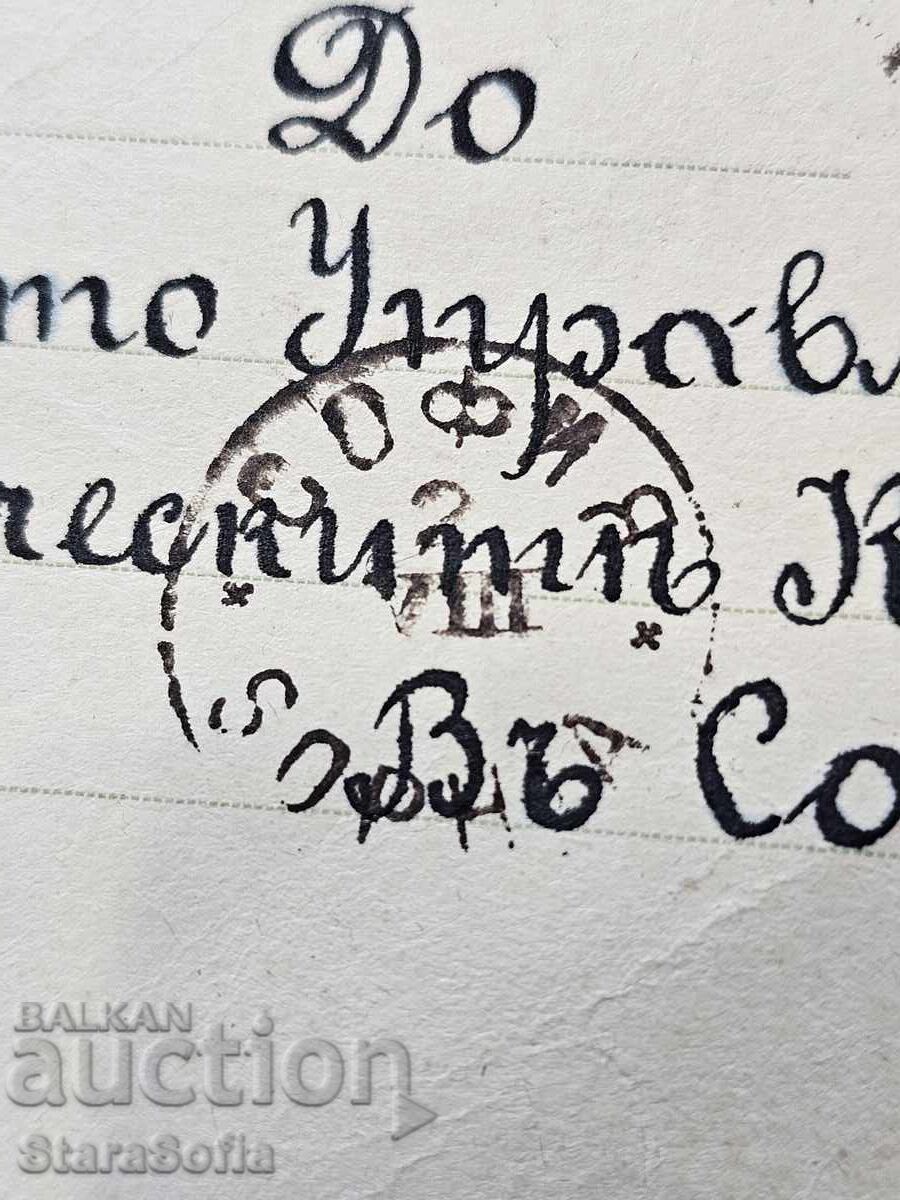 До
то Управл
ческитѣ К
Въ Со
СОФИЯ
2
VIII
BALKAN
auction
StaraSofia